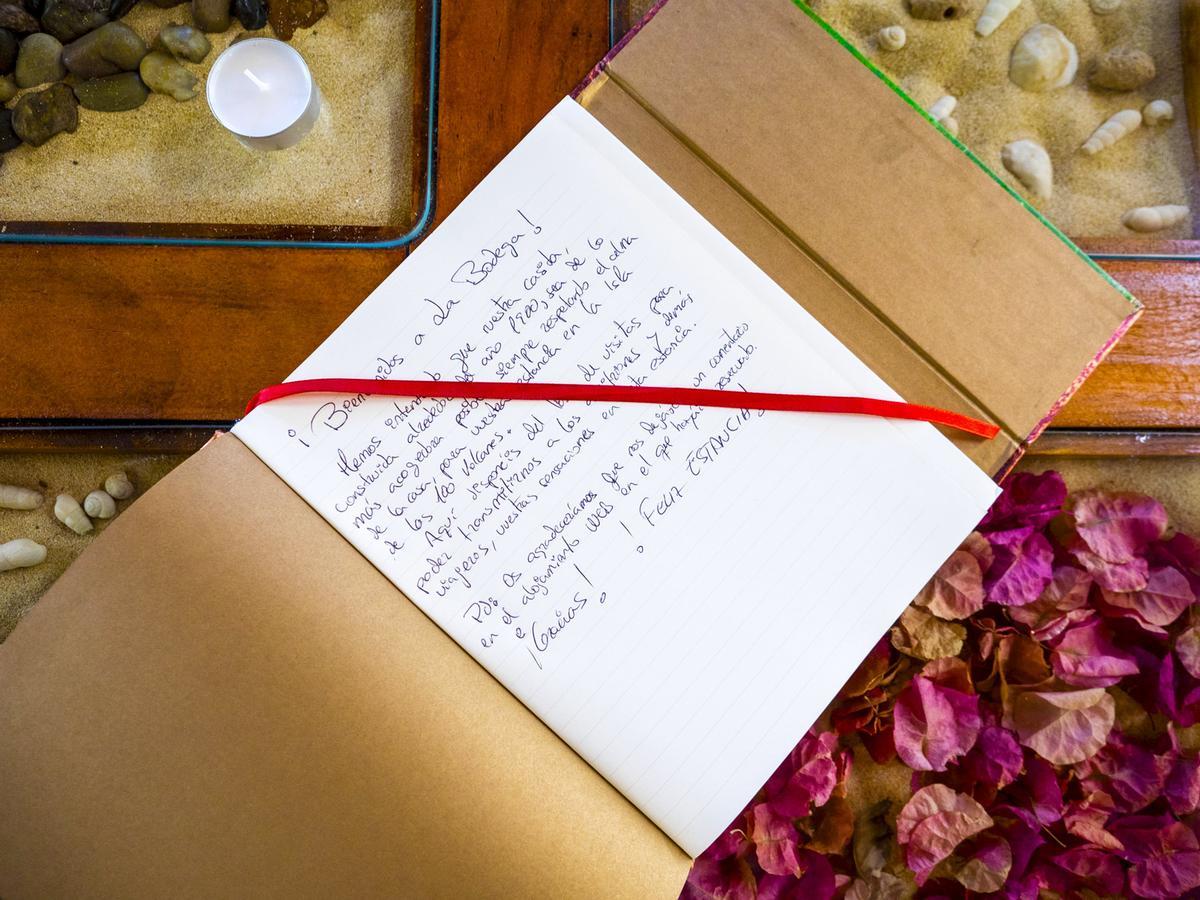 ¡Bienvenidos a La Bodega!
Hemos intentado que vuestra casita,
construida alrededor del año 1900, sea de lo
más acogedora posible, siempre respetando el alma
de la casa, para vuestra estancia en la Isla
de los 100 Volcanes.
Aquí disponéis del libro de visitas para
poder transmitirnos a los anfitriones y demás
viajeros, vuestras sensaciones en estancia.
Pd: Os agradeceríamos que nos dejárais un comentario
en el alojamiento web en el que hayáis reservado.
¡Gracias! ¡FELIZ ESTANCIA!